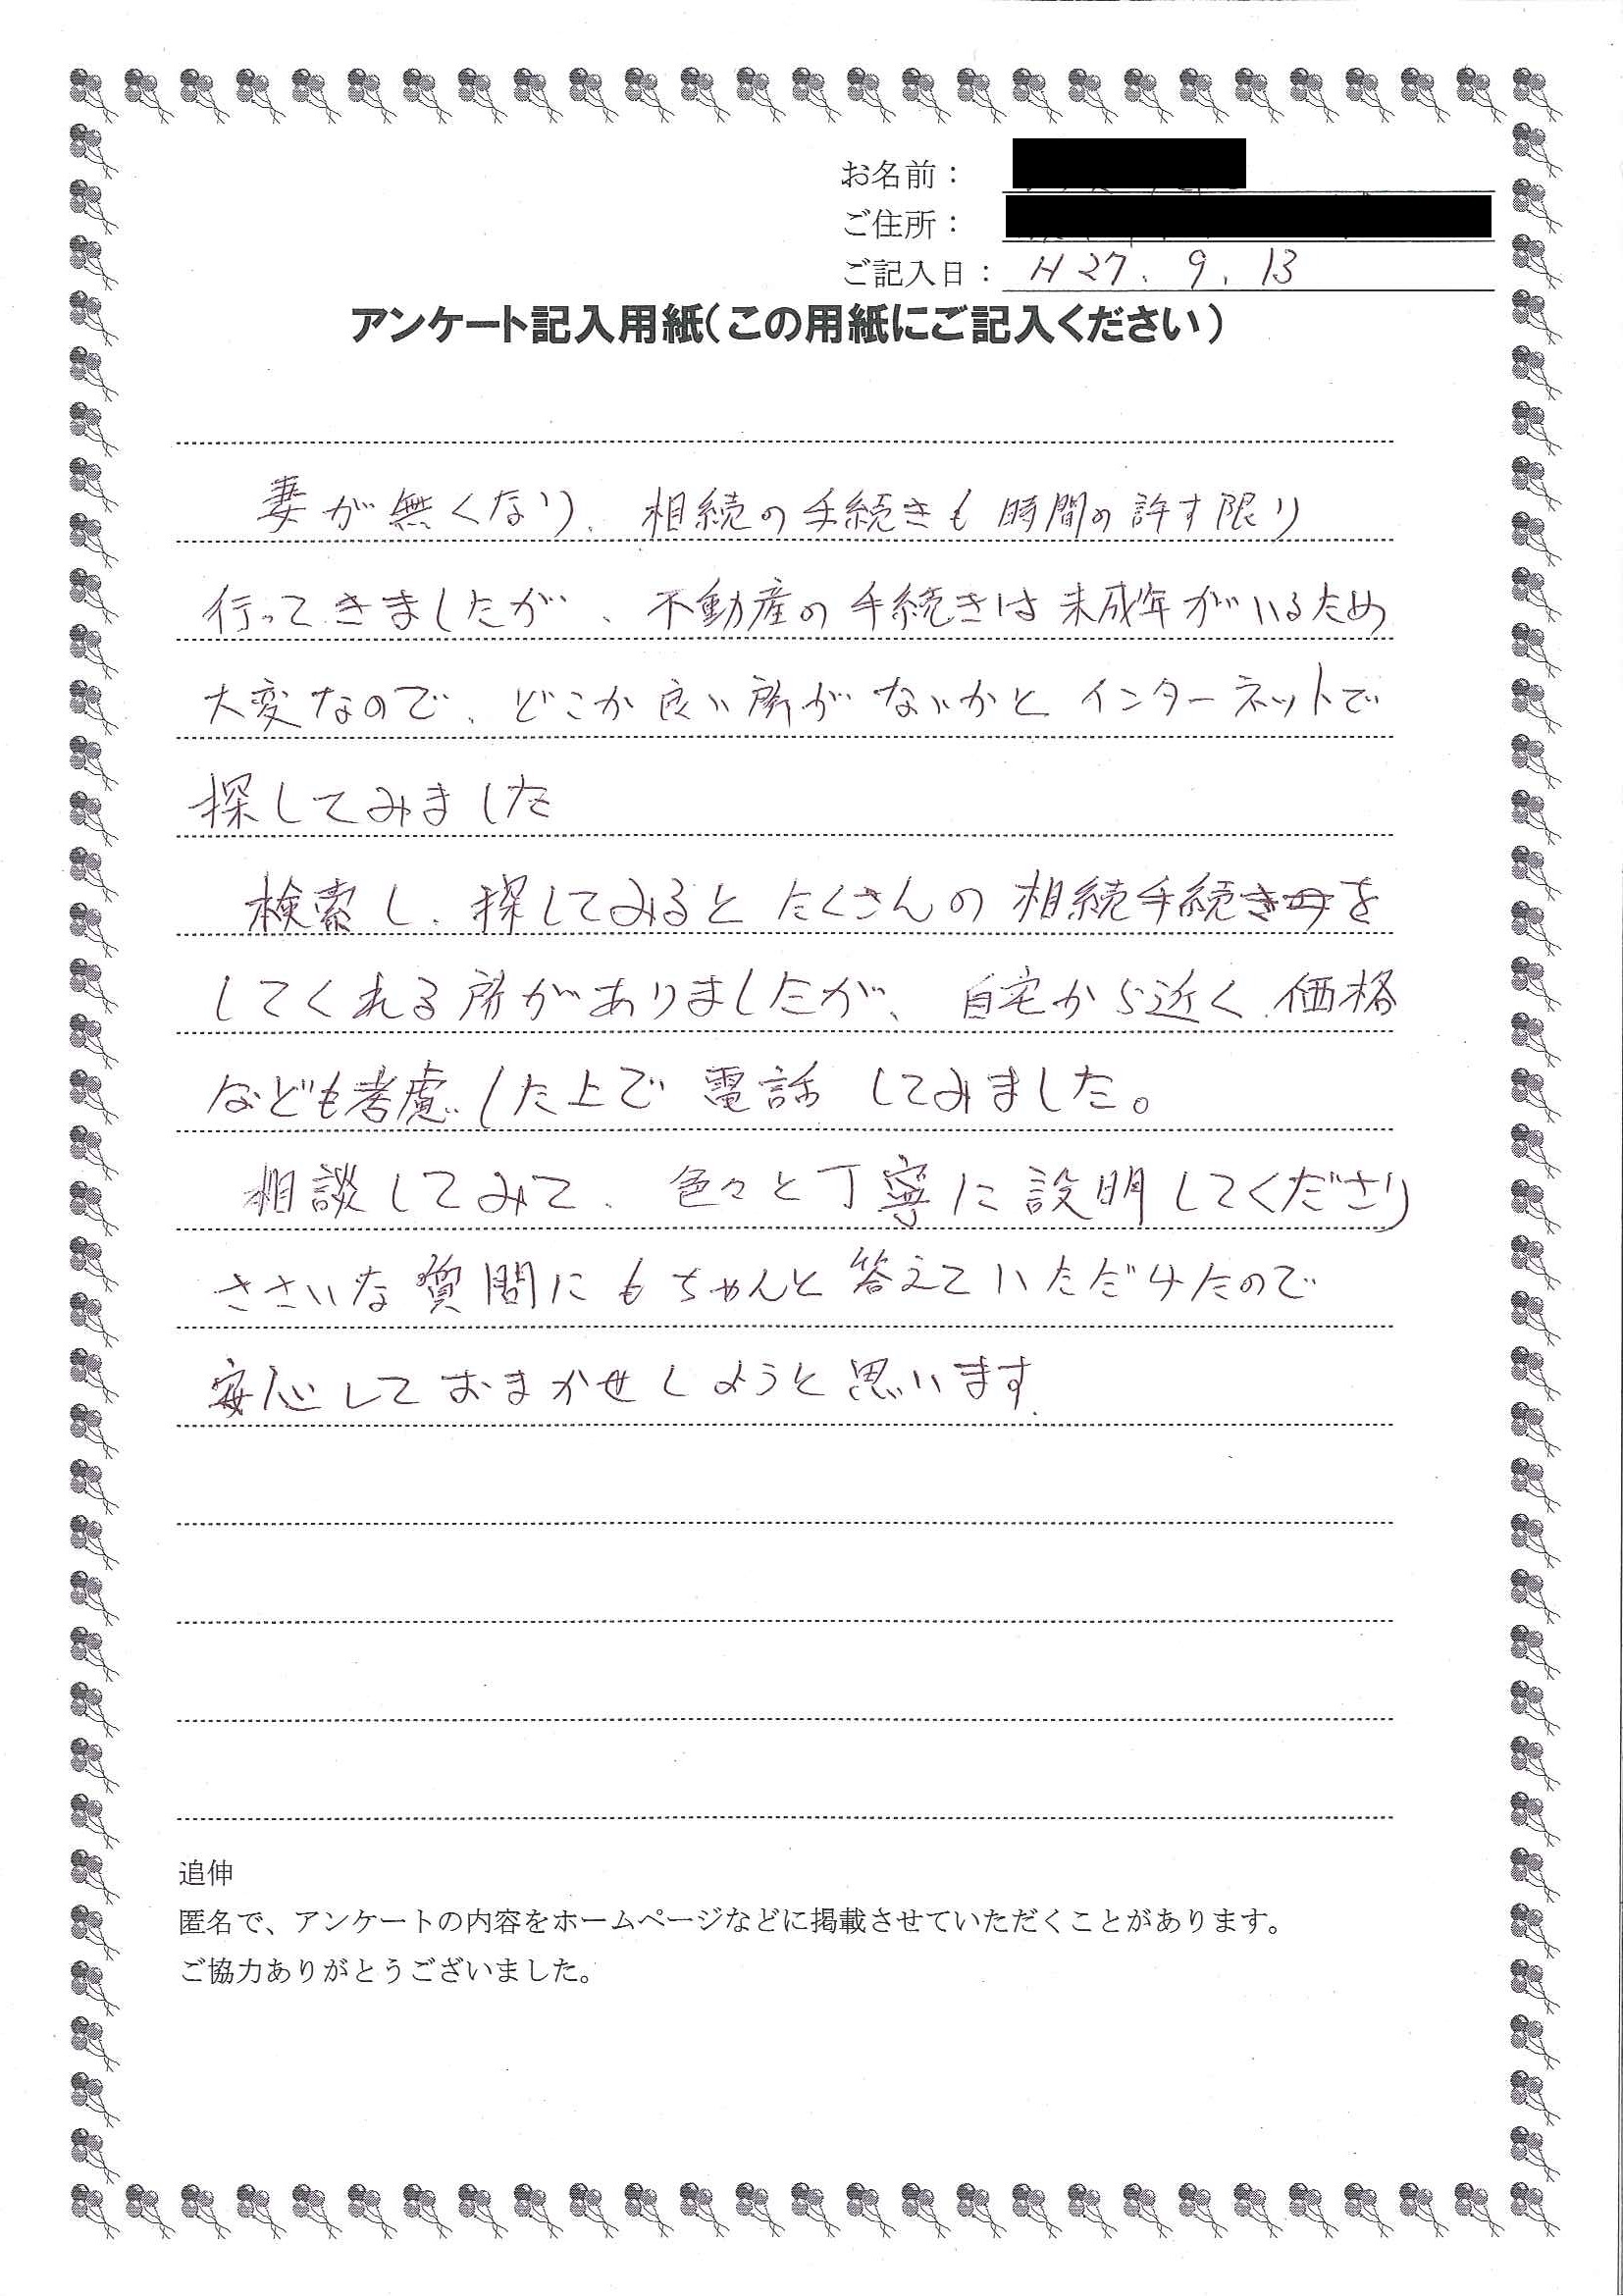 お名前：
ご住所：
ご記入日： H27.9.13
アンケート記入用紙（この用紙にご記入ください）
妻が無くなり、相続の手続きも時間の許す限り
行ってきましたが、不動産の手続きは未成年がいるため
大変なので、どこか良い所がないかとインターネットで
探してみました
検索し、探してみるとたくさんの相続手続きを
してくれる所がありましたが、自宅から近く、価格
なども考慮した上で電話してみました。
相談してみて、色々と丁寧に説明してくださり
ささいな質問にもちゃんと答えていただけたので
安心しておまかせしようと思います.
追伸
匿名で、アンケートの内容をホームページなどに掲載させていただくことがあります。
ご協力ありがとうございました。